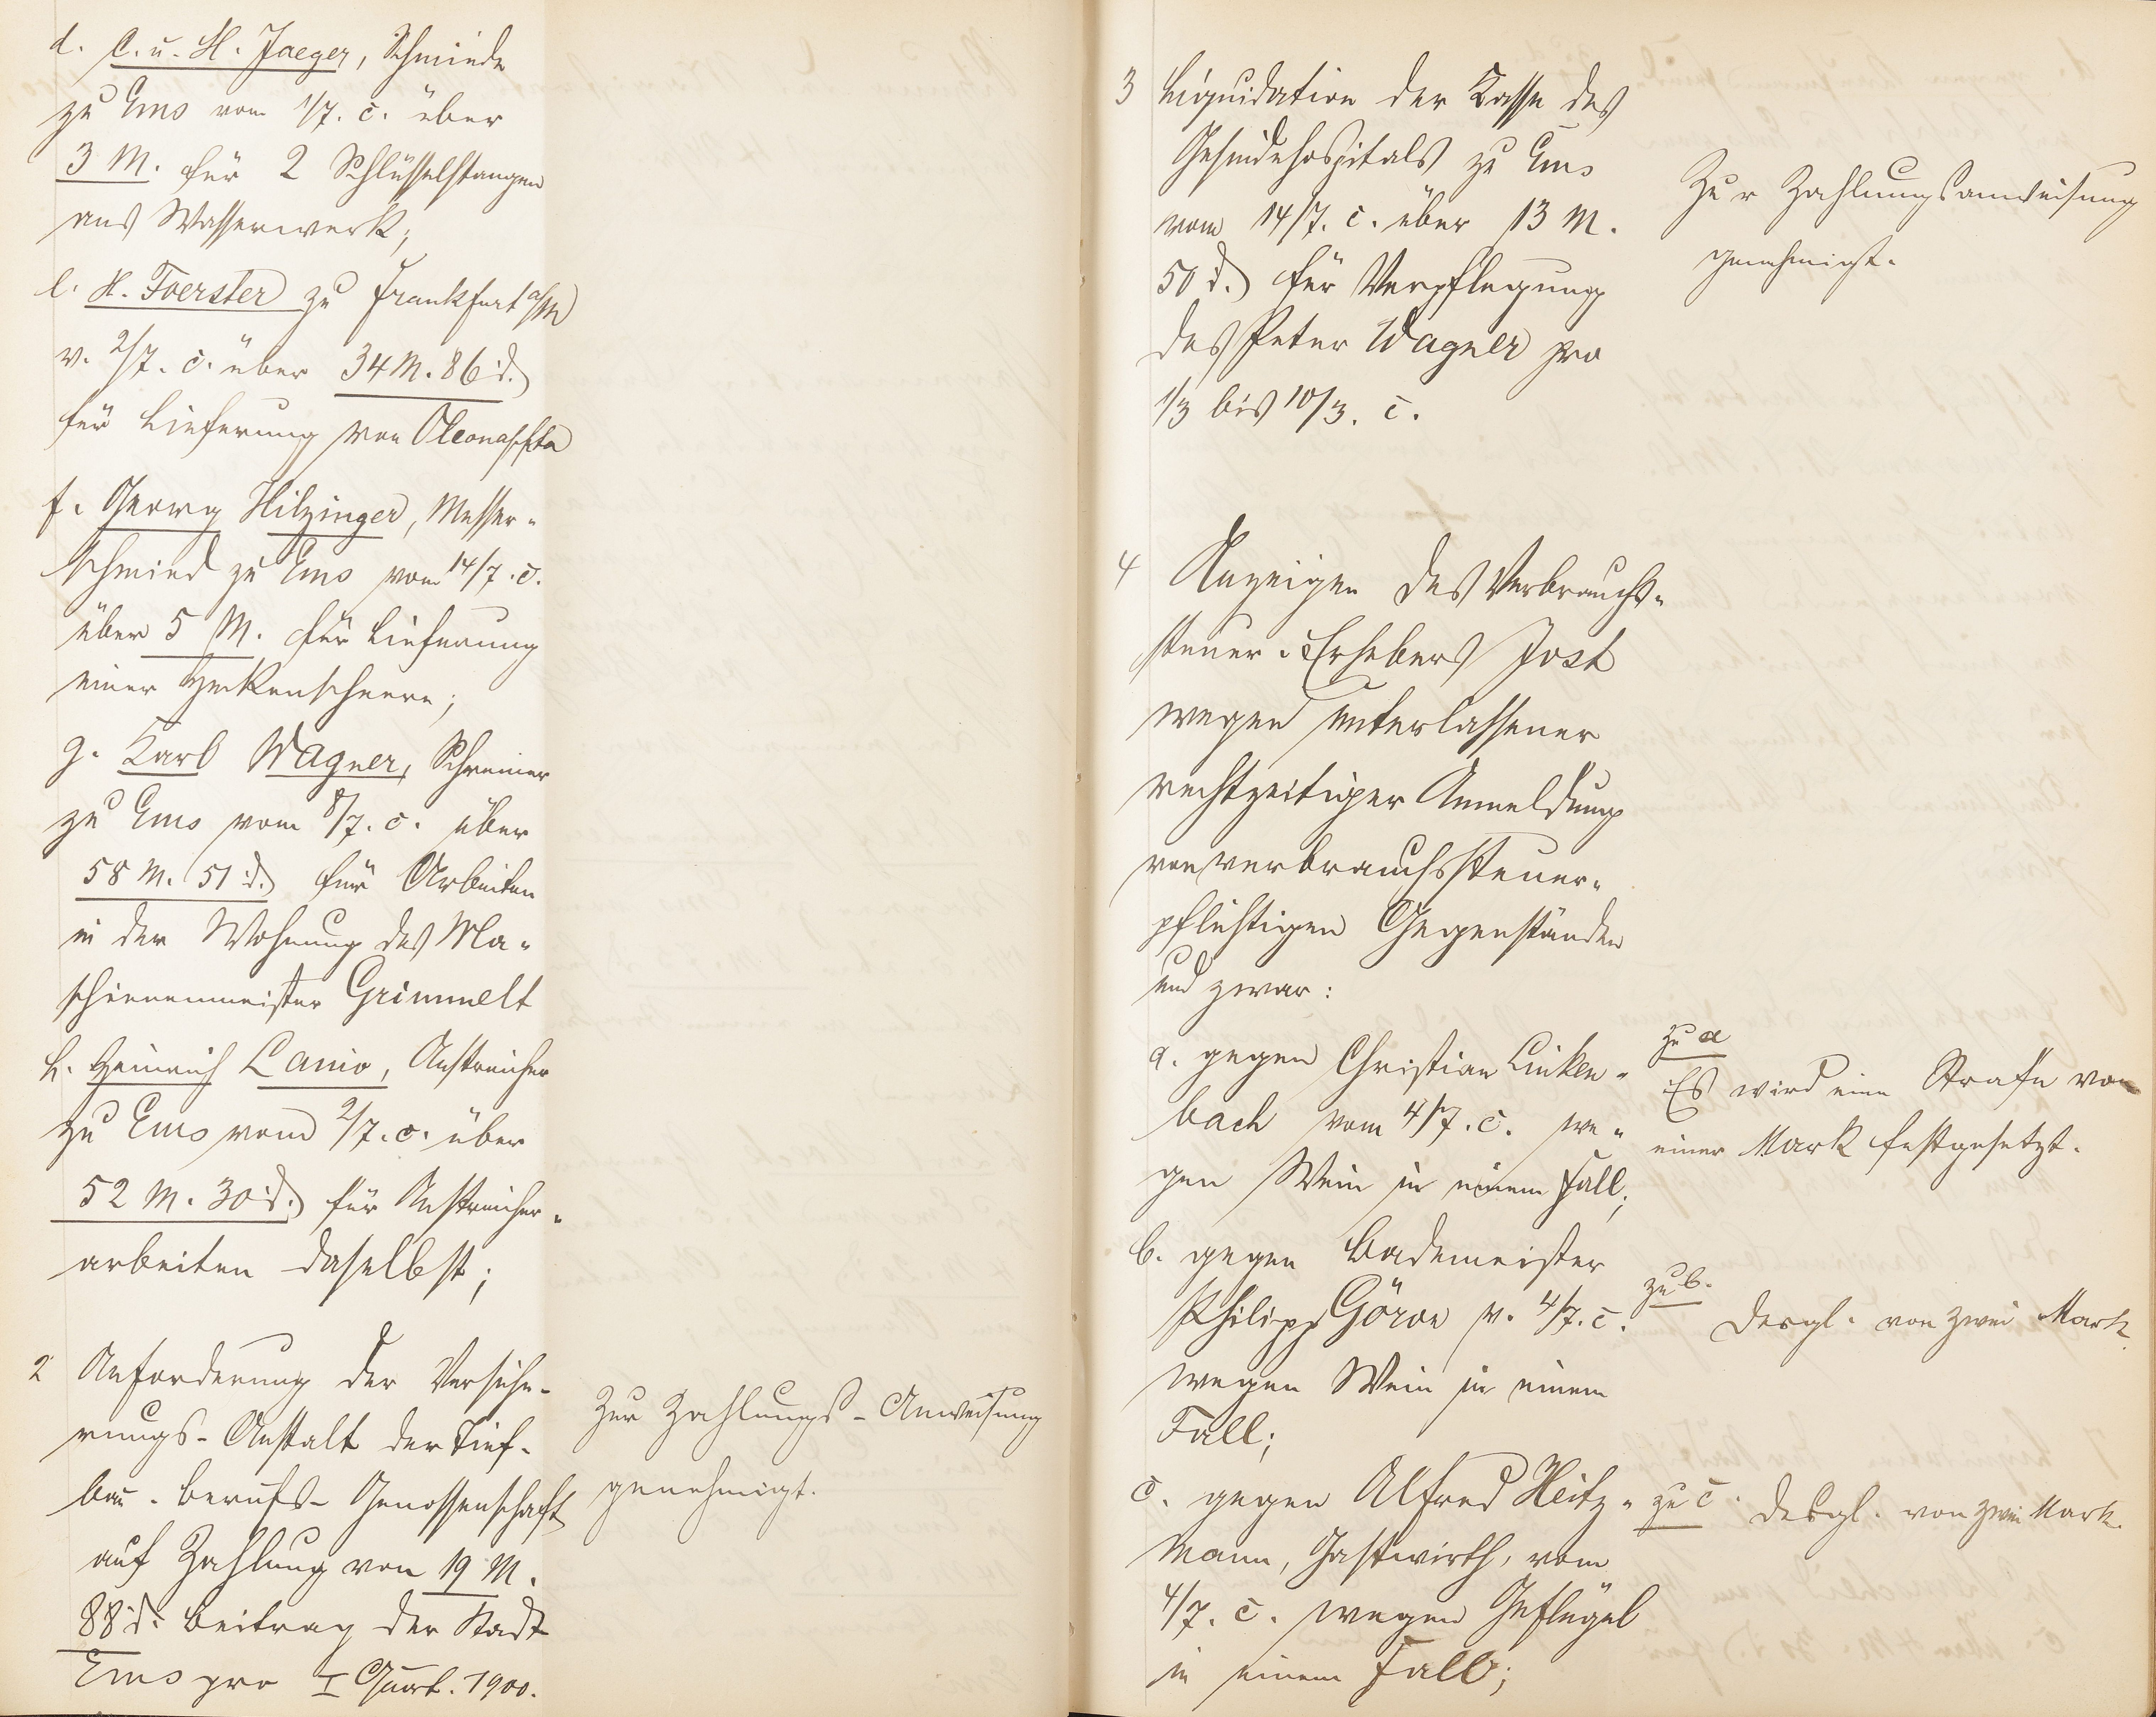 d. C. u. H. Jaeger, Schmiede
zu Ems vom 1/7. c. über
3 M. für 2 Schlüsselstangen
ans Wasserwerk;
e. H. Foerster zu Frankfurt a/M
v. 2/7. c. über 34 M. 86 d.
für Lieferung von Oleonaphta
f. Georg Hilzinger, Messer-
schmied zu Ems vom 14/7. c.
über 5 M. für Lieferung
einer Heckenscheere;
g. Karl Wagner, Schreiner
zu Ems vom 8/7. c. über
58 M. 51 d. für Arbeiten
in der Wohnung des Ma-
schienenmeister Grimmelt
h. Heinrich Lanio, Anstreicher
zu Ems vom 2/7. c. über
52 M. 30 d. für Anstreicher-
arbeiten daselbst;
2 Anforderung der Versiche-
rungs-Anstalt der Tief-
bau-Berufs-Genossenschaft
auf Zahlung von 19 M.
88 d. Beitrag der Stadt
Ems pro I Quart. 1900.
Zur Zahlungs-Anweisung
genehmigt.
3 Liquidation der Kasse des
Gesindehospitals zu Ems
vom 14/7. c. über 13 M.
50 d. für Verpflegung
des Peter Wagner pro
1/3 bis 10/3. c.
Zur Zahlungsanweisung
genehmigt.
4 Anzeigen des Verbrauchs-
steuer-Erhebers Jost
wegen unterlassener
rechtzeitiger Anmeldung
von verbrauchssteuer-
pflichtigen Gegenständen
und zwar:
a. gegen Christian Linken-
bach vom 4/7. c. we-
gen Wein in einem Fall;
zu a
Es wird eine Strafe von
einer Mark festgesetzt.
b. gegen Bademeister
Philipp v. 4/7. c.
wegen Wein in einem
Fall;
zu b.
Desgl. von zwei Mark.
c. gegen Alfred Heitz-
mann, Gastwirth, vom
4/7. c. wegen Geflügel
in einem Fall;
zu c. Desgl. von zwei Mark.